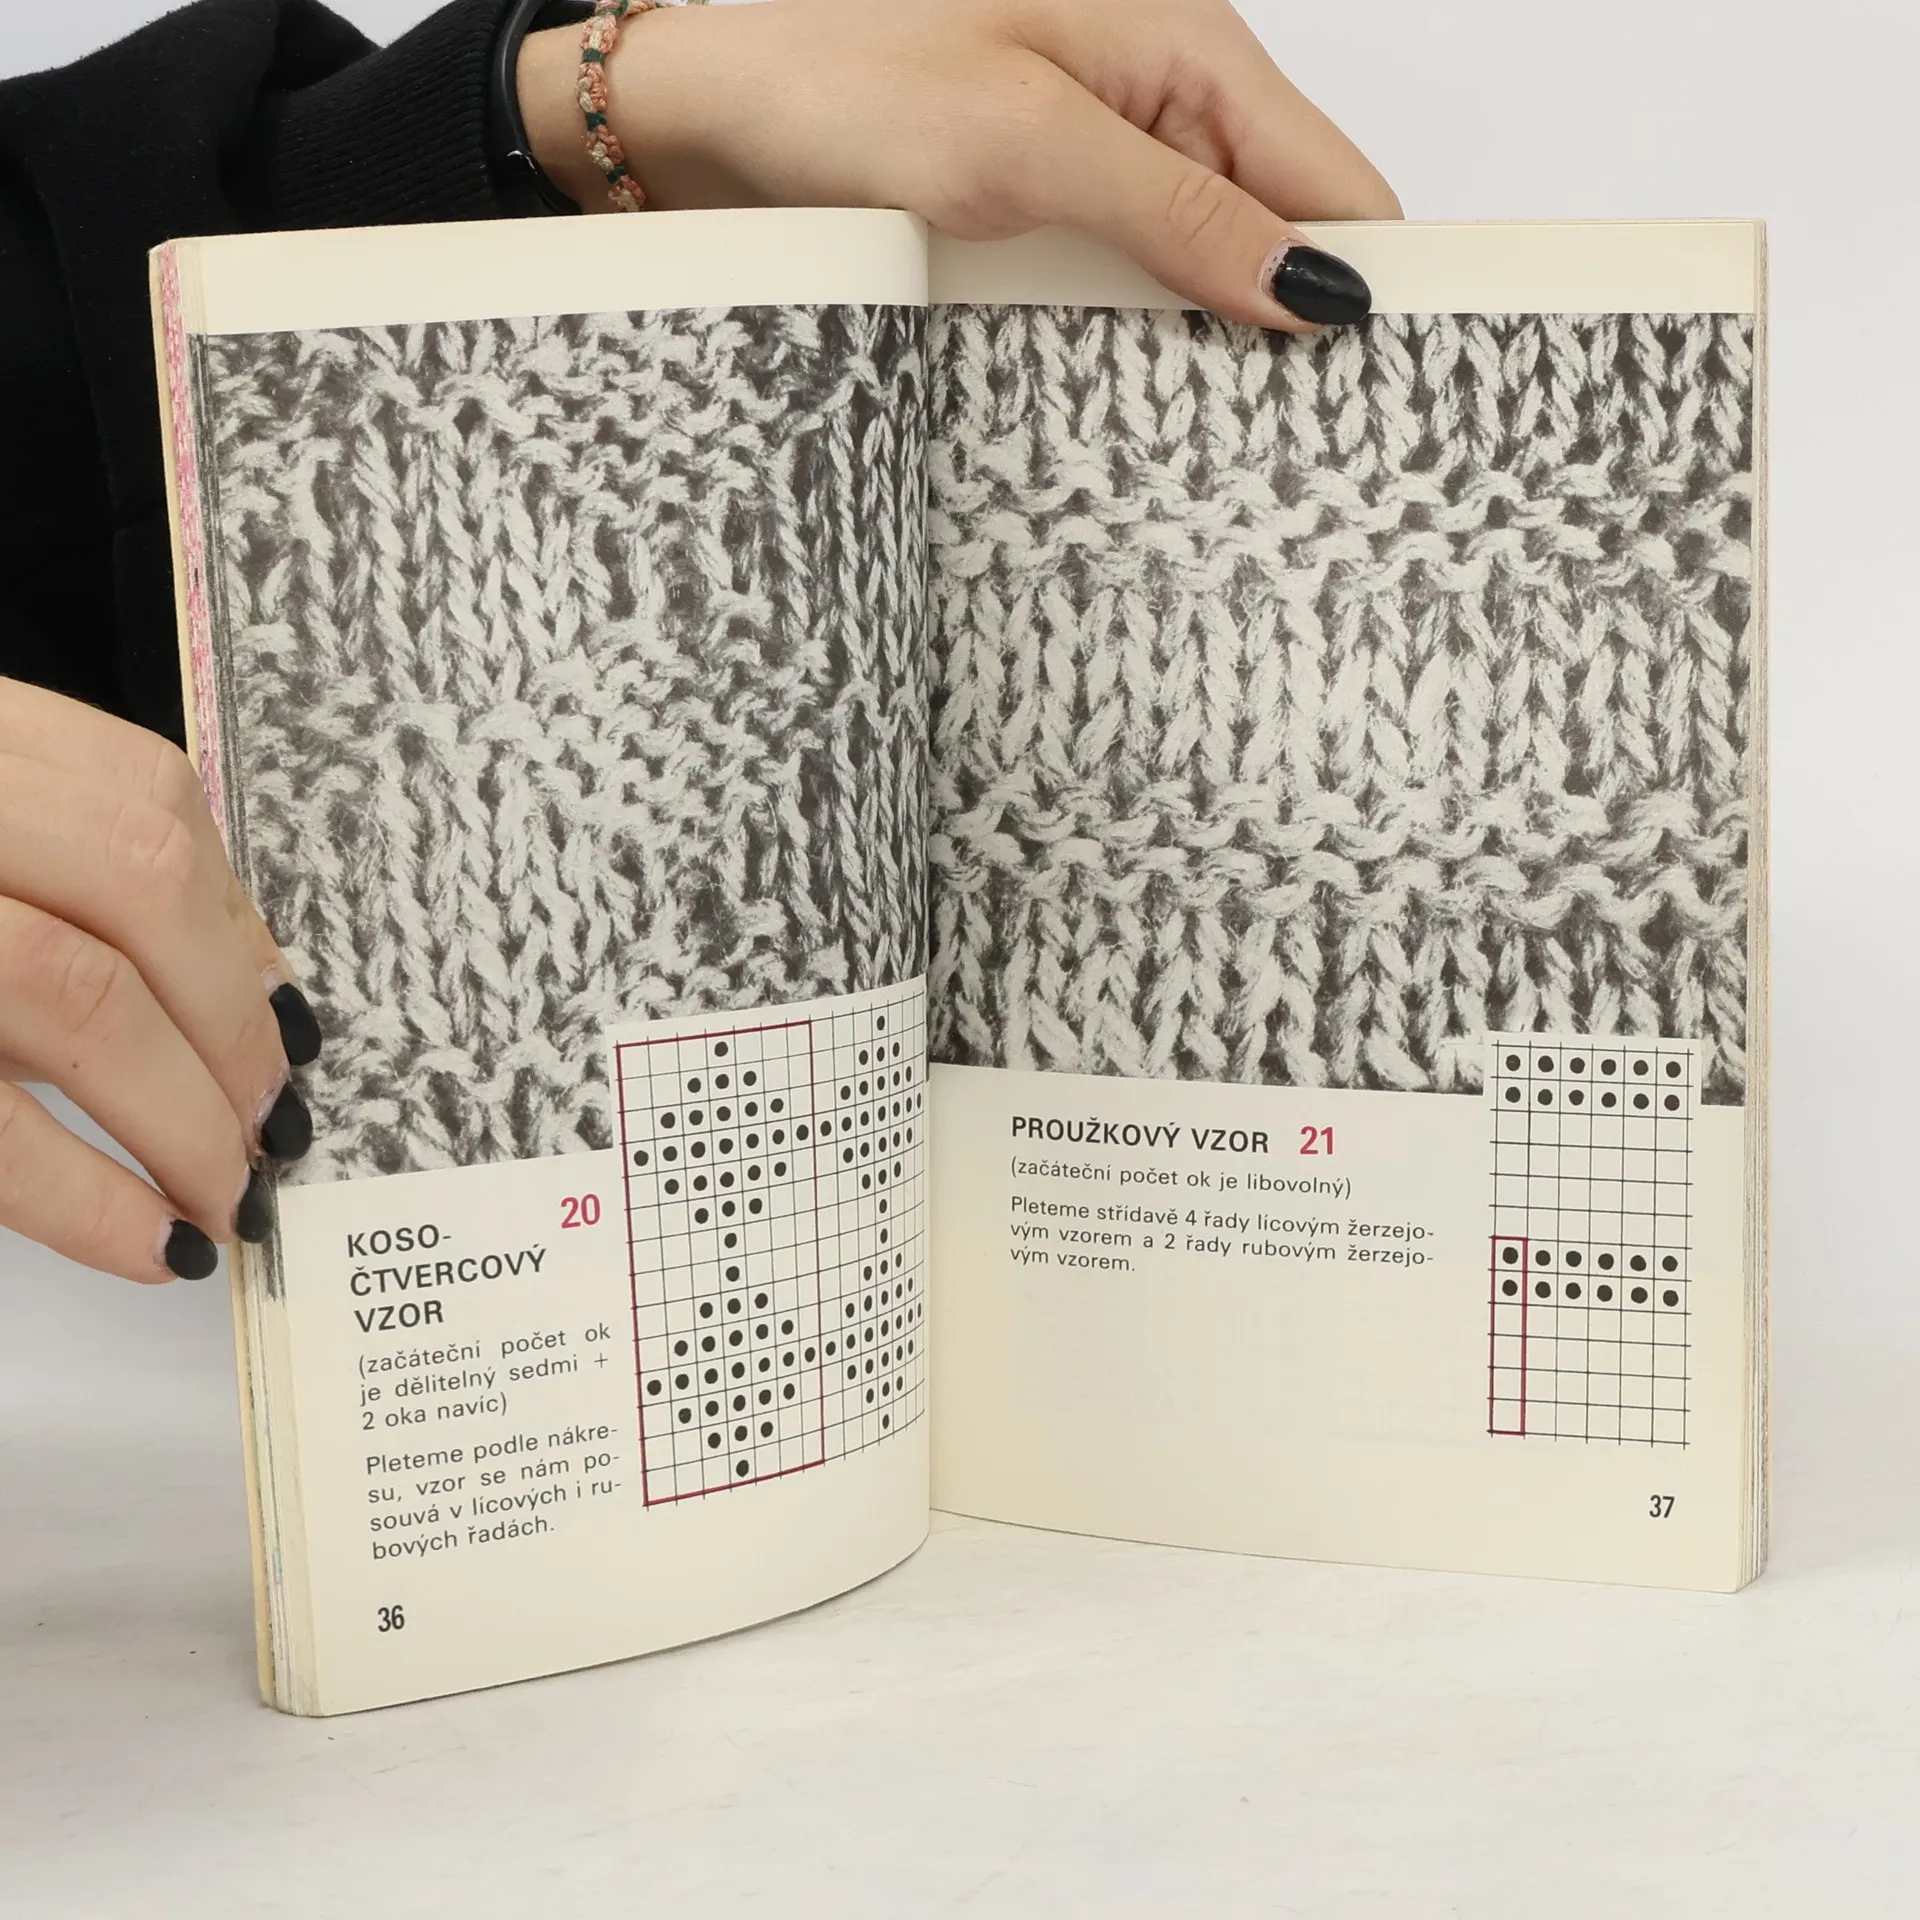 KOSO- 20
ČTVERCOVÝ
VZOR
(začáteční počet ok
je dělitelný sedmi +
2 oka navíc)
Pleteme podle nákre-
su, vzor se nám po-
souvá v lícových i ru-
bových řadách.
36
PROUŽKOVÝ VZOR 21
(začáteční počet ok je libovolný)
Pleteme střídavě 4 řady lícovým žerzejo-
vým vzorem a 2 řady rubovým žerzejo-
vým vzorem.
37